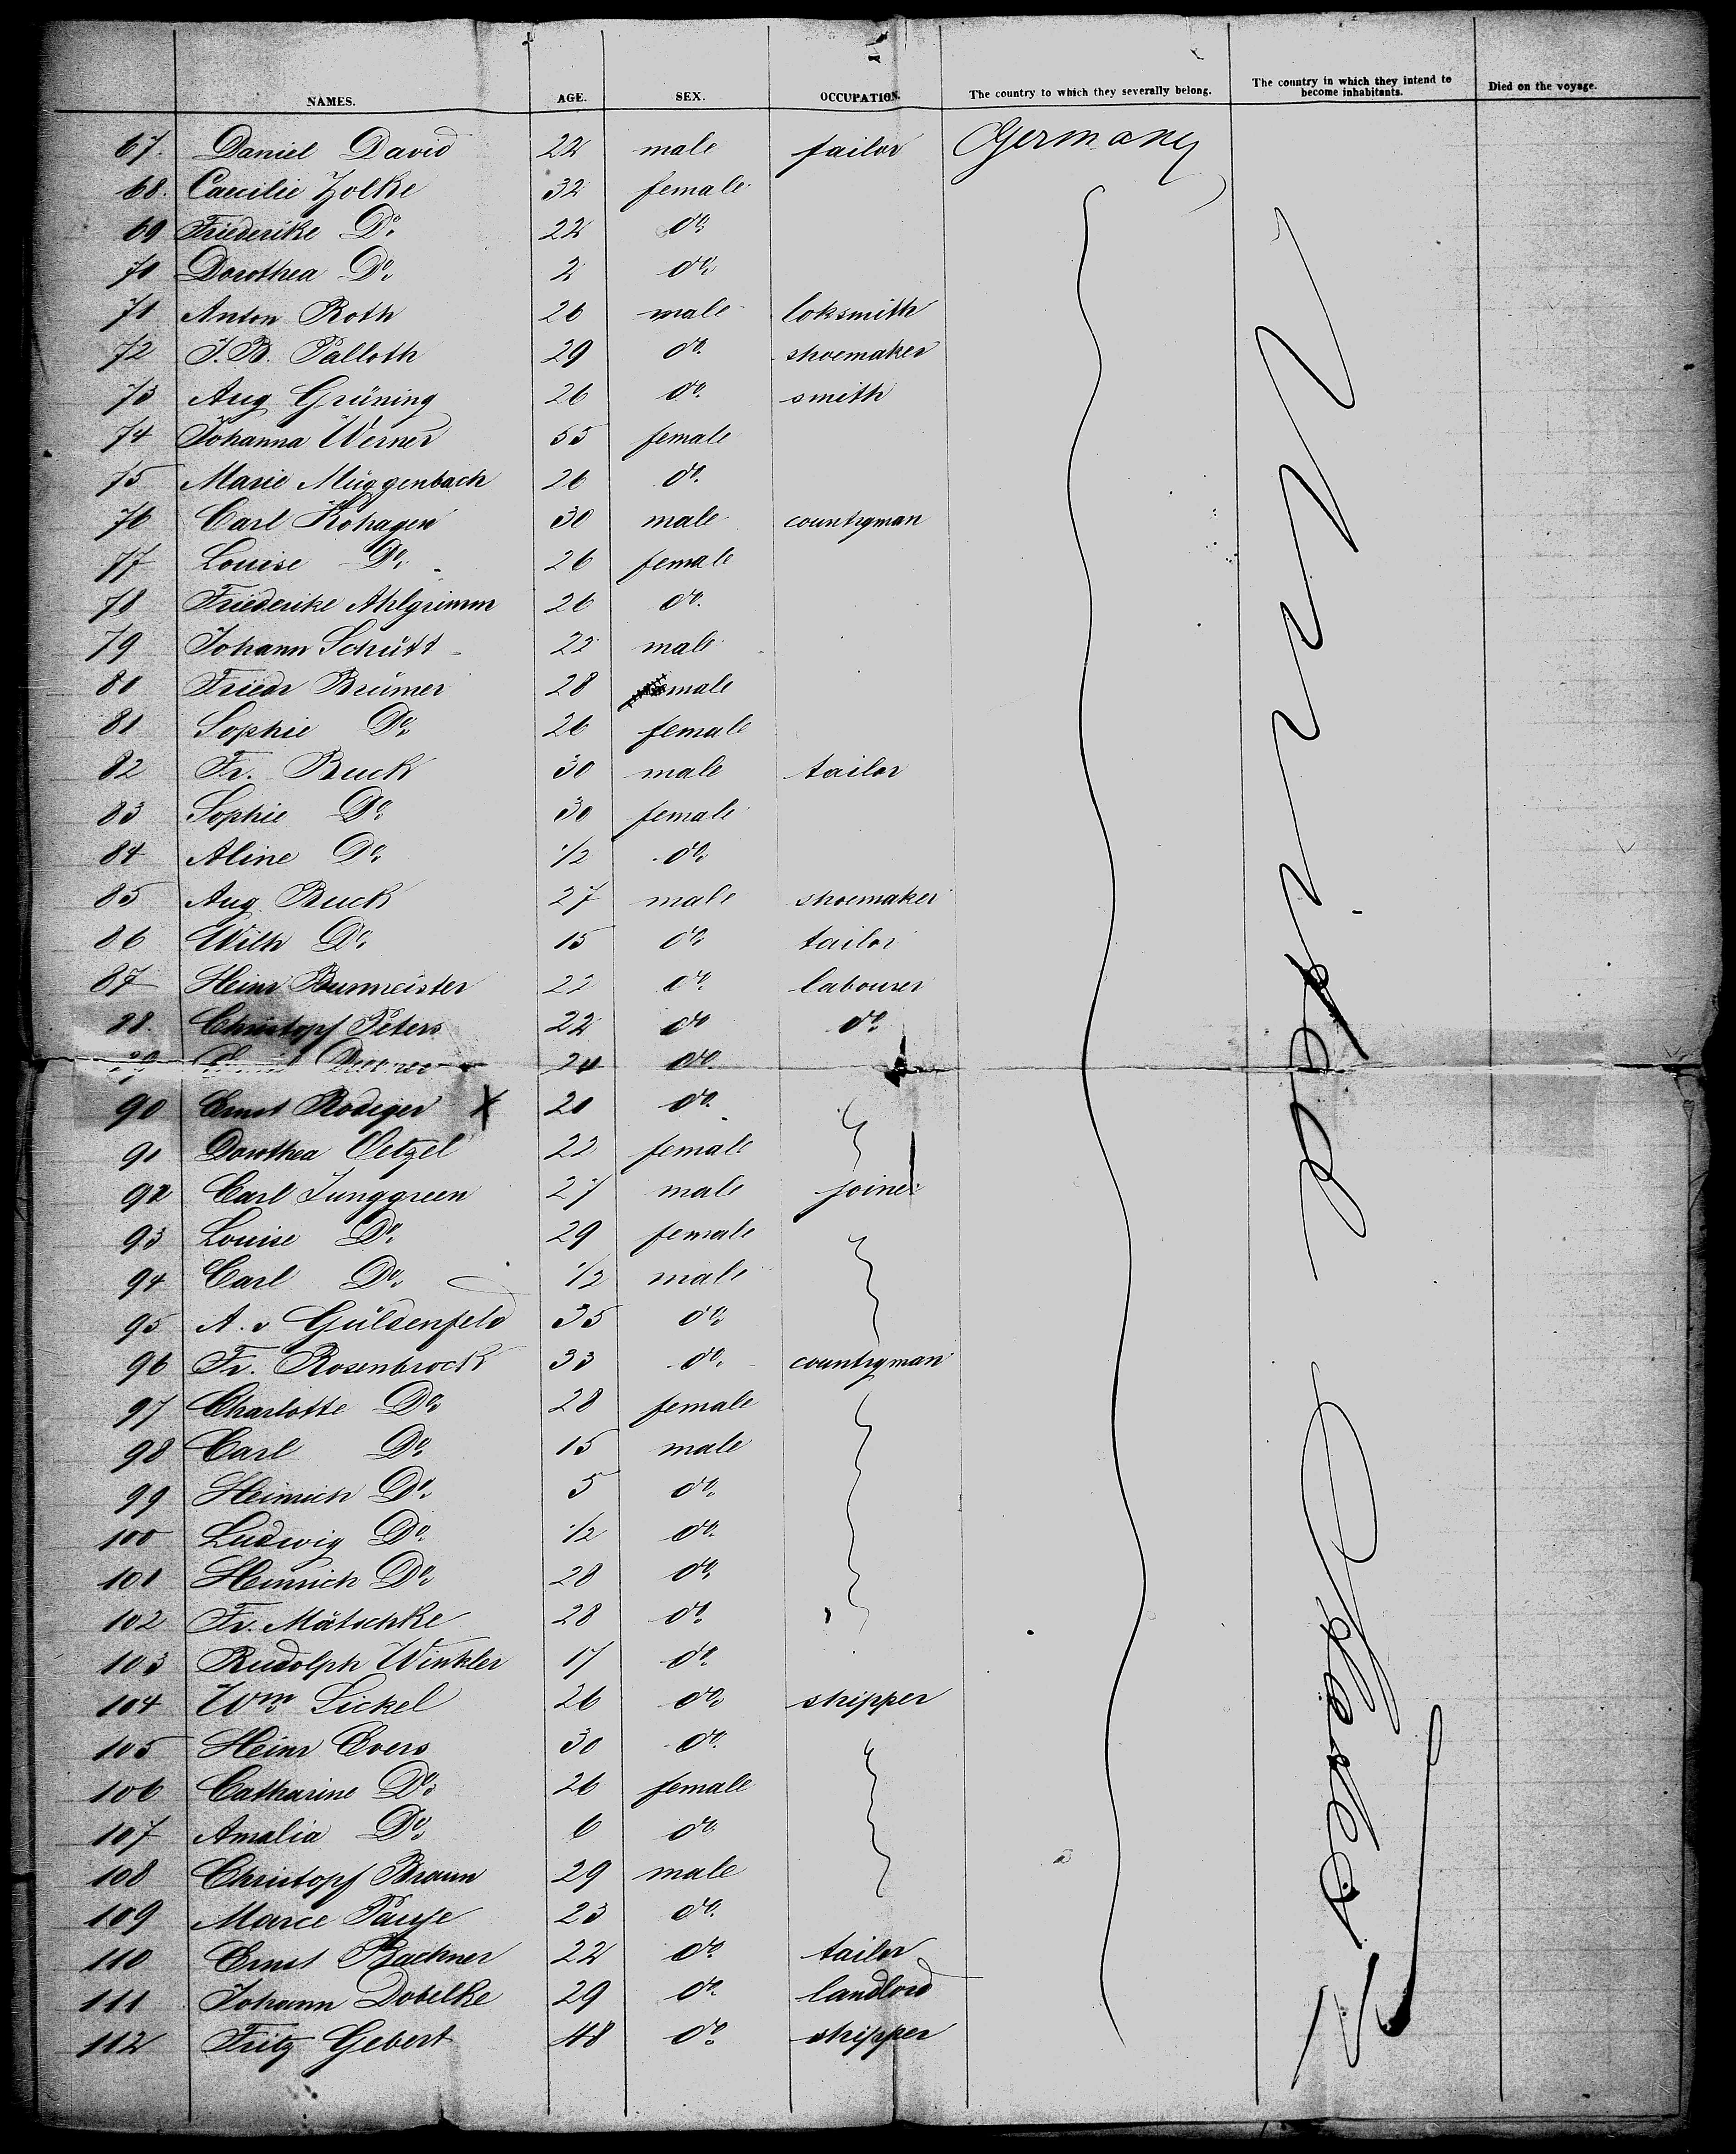 NAMES. AGE. SEX. OCCUPATION. The country to which they severally belong. The country in which they intend to become inhabitants. Died on the voyage.
67. Daniel David 22 male tailor Germany
68. Caecilie Zolke 32 female
69 Friederike Do. 22 do.
70 Dorothea Do. 2 do.
71 Anton Roth 26 male loksmith
72 J. B. Palloth 29 do. shoemaker
73 Aug Grüning 26 do. smith
74 Johanna Werner 55 female
75 Marie Müggenbach 26 do.
76 Carl Kohagen 30 male countryman
77 Louise Do. 26 female
78 Friederike Ahlgrimm 26 do.
79 Johann Schütt 22 male
80 Friedr Brümer 28 male
81 Sophie Do. 26 female
82 Fr. Buck 30 male tailor
83 Sophie Do. 30 female
84 Aline Do. 1/2 do.
85 Aug. Buck 27 male shoemaker
86 Wilh Do. 15 do. tailor
87 Heinr Burmeister 22 do. labourer
88. Christopf Peters 22 do do.
24 do.
90 Ernst Rodiger X 20 do.
91 Dorothea Oetzel 22 female
92 Carl Junggreen 27 male joiner
93 Louise Do. 29 female
94 Carl Do. 1/2 male
95 A. v Güldenfeld 35 do.
96 Fr. Rosenbrock 33 do. countryman
97 Charlotte Do. 28 female
98 Carl Do. 15 male
99 Heinrich Do. 5 do.
100 Ludwig Do. 1/2 do.
101 Heinrich Do. 28 do.
102 Fr. Mätschke 28 do.
103 Rudolph Winkler 17 do.
104 Wm. Sickel 26 do. shipper
105 Heinr Evers 30 do.
106 Catharine Do. 26 female
107 Amalia Do. 6 do.
108 Christopf Braun 29 male
109 23 do.
110 Ernst Bachner 22 do tailor
111 Johann Dobelke 29 do. landlord
112 Fritz Gebert 48 do. shipper